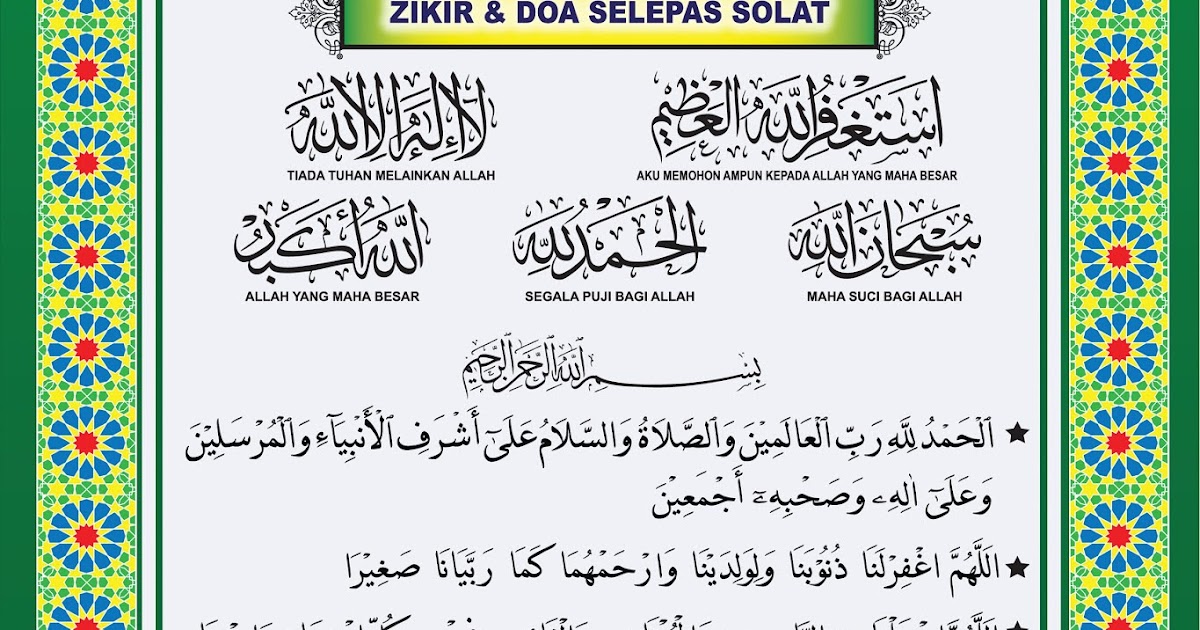 ZIKIR & DOA SELEPAS SOLAT
اَسْتَغْفِرُ اللهَ الْعَظِيْمِ
AKU MEMOHON AMPUN KEPADA ALLAH YANG MAHA BESAR
لَا إِلٰهَ إِلَّا اللهُ
TIADA TUHAN MELAINKAN ALLAH
سُبْحَانَ اللهِ
MAHA SUCI BAGI ALLAH
الْحَمْدُ لِلّٰهِ
SEGALA PUJI BAGI ALLAH
اللهُ أَكْبَرُ
ALLAH YANG MAHA BESAR
بِسْمِ اللهِ الرَّحْمٰنِ الرَّحِيْمِ
★ اَلْحَمْدُ لِلّٰهِ رَبِّ الْعَالَمِيْنَ وَالصَّلَاةُ وَالسَّلَامُ عَلَىٓ أَشْرَفِ الْأَنْبِيَآءِ وَالْمُرْسَلِيْنَ
وَعَلَىٓ اٰلِهِۦ وَصَحْبِهِۦٓ أَجْمَعِيْنَ
★ اَللَّهُمَّ اغْفِرْلَنَا ذُنُوْبَنَا وَلِوَلِدَيْنَا وَارْحَمْهُمَا كَمَا رَبَّيَانَا صَغِيْرَا